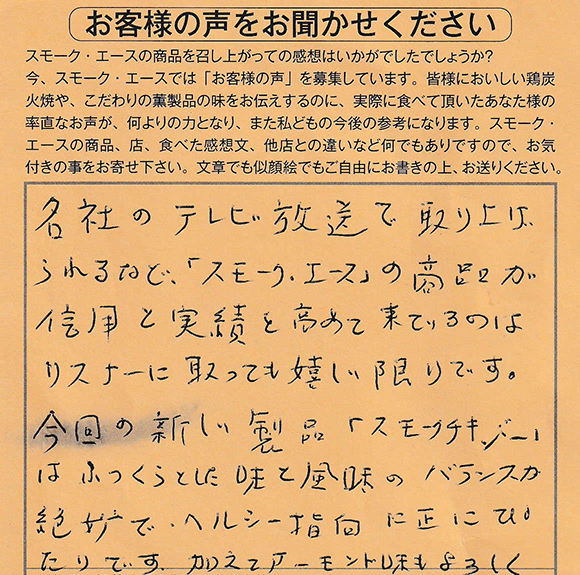 お客様の声をお聞かせください
スモーク・エースの商品を召し上がっての感想はいかがでしたでしょうか?
今、スモーク・エースでは「お客様の声」を募集しています。皆様においしい鶏炭
火焼や、こだわりの薫製品の味をお伝えするのに、実際に食べて頂いたあなた様の
率直なお声が、何よりの力となり、また私どもの今後の参考になります。スモーク・
エースの商品、店、食べた感想文、他店との違いなど何でもありですので、お気
付きの事をお寄せ下さい。文章でも似顔絵でもご自由にお書きの上、お送りください。
各社のテレビ放送で取り上げ
られるなど、「スモーク・エース」の商品が
信用と実績を高めて来ているのは
リスナーに取っても嬉しい限りです。
今回の新しい製品「スモークチキンジー」
はふっくらとした味と風味のバランスが
絶妙で、ヘルシー指向に正にぴっ
たりです。加えてアーモンド味もよろしく